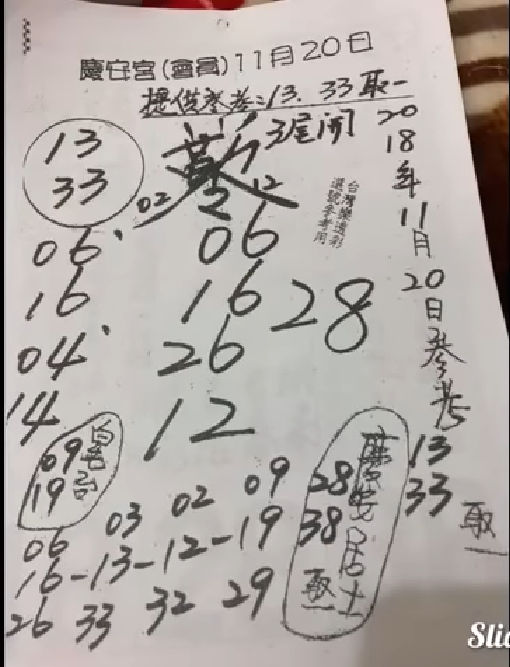 慶安宮(會員)11月20日
提供參考:13.33取一
3尾開
13
33
02 2 12
台灣樂透彩
選號參考用
2018年11月20日參考
13
33
取一
06
16
04
14
06
16
26
12
28
09
19
慶安居士
28
38
取一
06 03 02 09
16-13-12-19
26 33 32 29
Slid